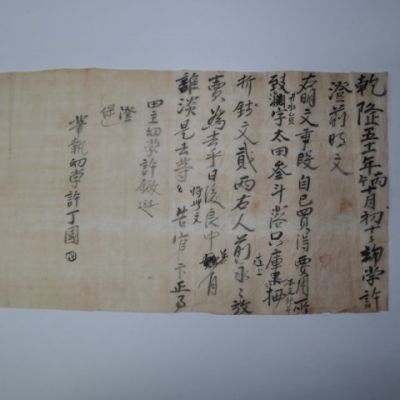 乾隆五十一年丙午月初十日幼學許
澄前明文
右明文事段自己買得要用所
致字太田參斗落只庫果
折錢文貳兩右人前永〃放
賣為去乎日後良中有
雜談是去等 將此文 告官卞正事
田主幼學許
證
保
筆執幼學許丁國